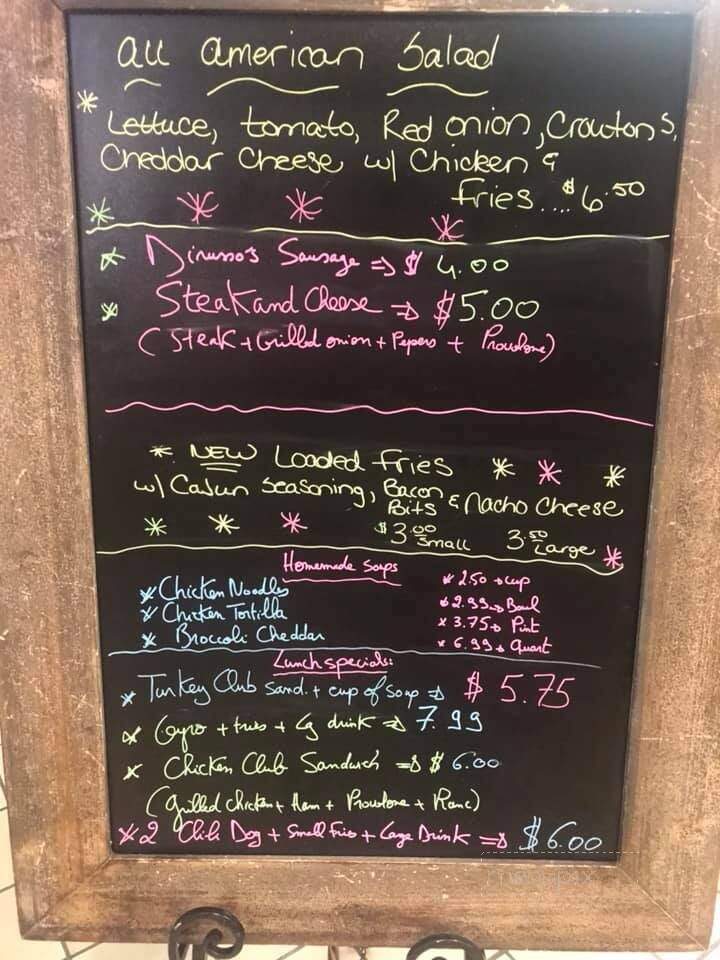 all American Salad
* Lettuce, tomato, Red onion, Croutons,
Cheddar Cheese w/ Chicken &
Fries....$6.50
* Dirusso's Sausage => $ 4.00
* Steak and Cheese => $5.00
(Steak + Grilled onion + Pepers + Provolone)
* NEW Loaded Fries * * *
w/ Cajun Seasoning, Bacon Bits & Nacho Cheese
* * * $3.00 Small 3.50 Large *
Homemade Soups
* Chicken Noodles
* Chicken Tortilla
* Broccoli Cheddar
* 2.50 → cup
* 2.99 → Bowl
* 3.75 → Pint
* 6.99 → Quart
Lunch specials:
* Turkey Club Sand. + cup of Soup => $ 5.75
* Gyro + fries + Lg drink => 7.99
* Chicken Club Sandwich => $ 6.00
(grilled chicken + Ham + Provolone + Ranc)
* 2 Chili Dog + Small Fries + Large Drink => $6.00